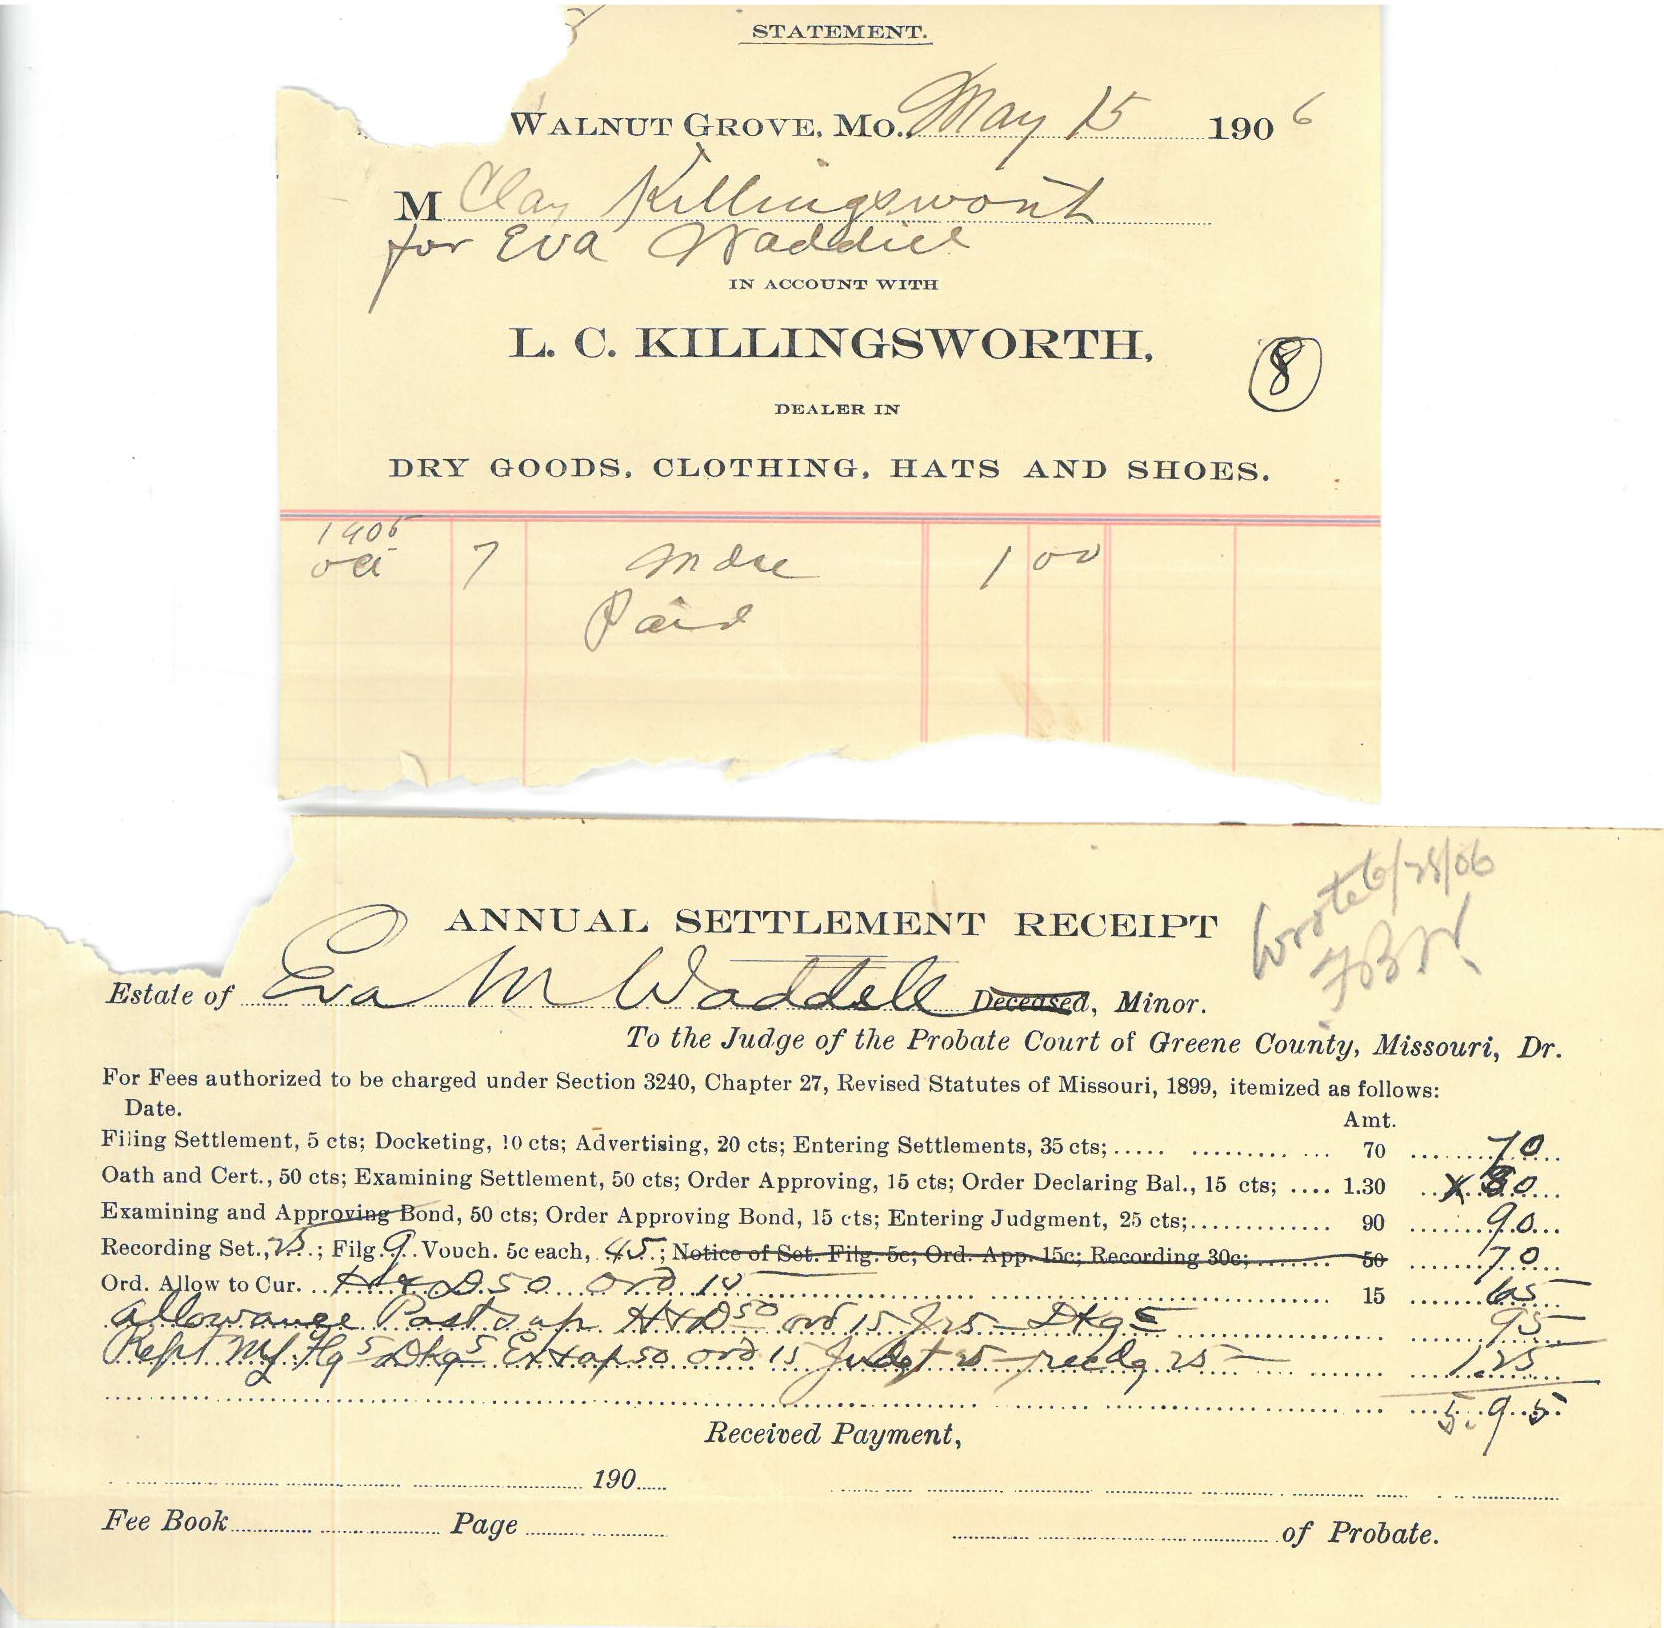 STATEMENT.
WALNUT GROVE, MO., May 15 1906
M Clay Killingswort
for Eva Waddill
IN ACCOUNT WITH
L. C. KILLINGSWORTH,
8
DEALER IN
DRY GOODS, CLOTHING, HATS AND SHOES.
1905
Oct 7 Mdse 1 00
Paid
Wrote 6/28/06
ANNUAL SETTLEMENT RECEIPT
Estate of Eva M Waddell Deceased, Minor.
To the Judge of the Probate Court of Greene County, Missouri, Dr.
For Fees authorized to be charged under Section 3240, Chapter 27, Revised Statutes of Missouri, 1899, itemized as follows:
Date. Amt.
Filing Settlement, 5 cts; Docketing, 10 cts; Advertising, 20 cts; Entering Settlements, 35 cts; 70 70
Oath and Cert., 50 cts; Examining Settlement, 50 cts; Order Approving, 15 cts; Order Declaring Bal., 15 cts; 1.30 80
Examining and Approving Bond, 50 cts; Order Approving Bond, 15 cts; Entering Judgment, 25 cts; 90 90
Recording Set., 25; Filg. 9 Vouch. 5c each, 45; Notice of Set. Filg. 5c; Ord. App. 15c; Recording 30c; 50 70
Ord. Allow to Cur. H & D 50 Ord 15 15 65
Allowance Past sup H & D 50 ord 15 J 25 Dkg 5 95
Rept Flg 5 Dkg 5 Ex & ap 50 ord 15 Judgt 25 recdg 25 1.25
5.95
Received Payment,
190
Fee Book Page of Probate.